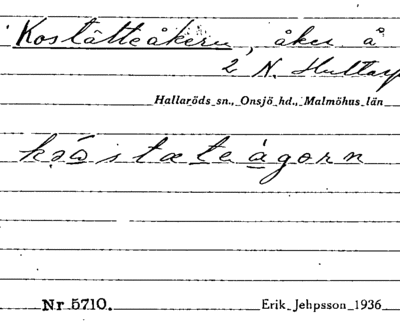 Kostätteåkern, åker å
2 N. Hultarp
Hallaröds sn., Onsjö hd., Malmöhus län
Nr 5710. Erik Jehpsson 1936